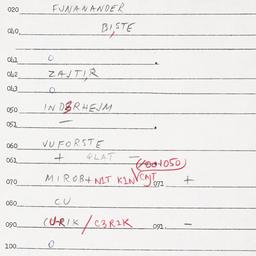 020 FJNANANDER
040 BISTE
041 0 .
042 ZAJTIR
043 0
050 IND3RHEJM
051 — .
060 VUFORSTE
061 + GLAT —
(001050)
070 MIROB+ NIT KIN CAJT 071 +
080 CU
090 CURIK / C3RIK 091 —
100 0